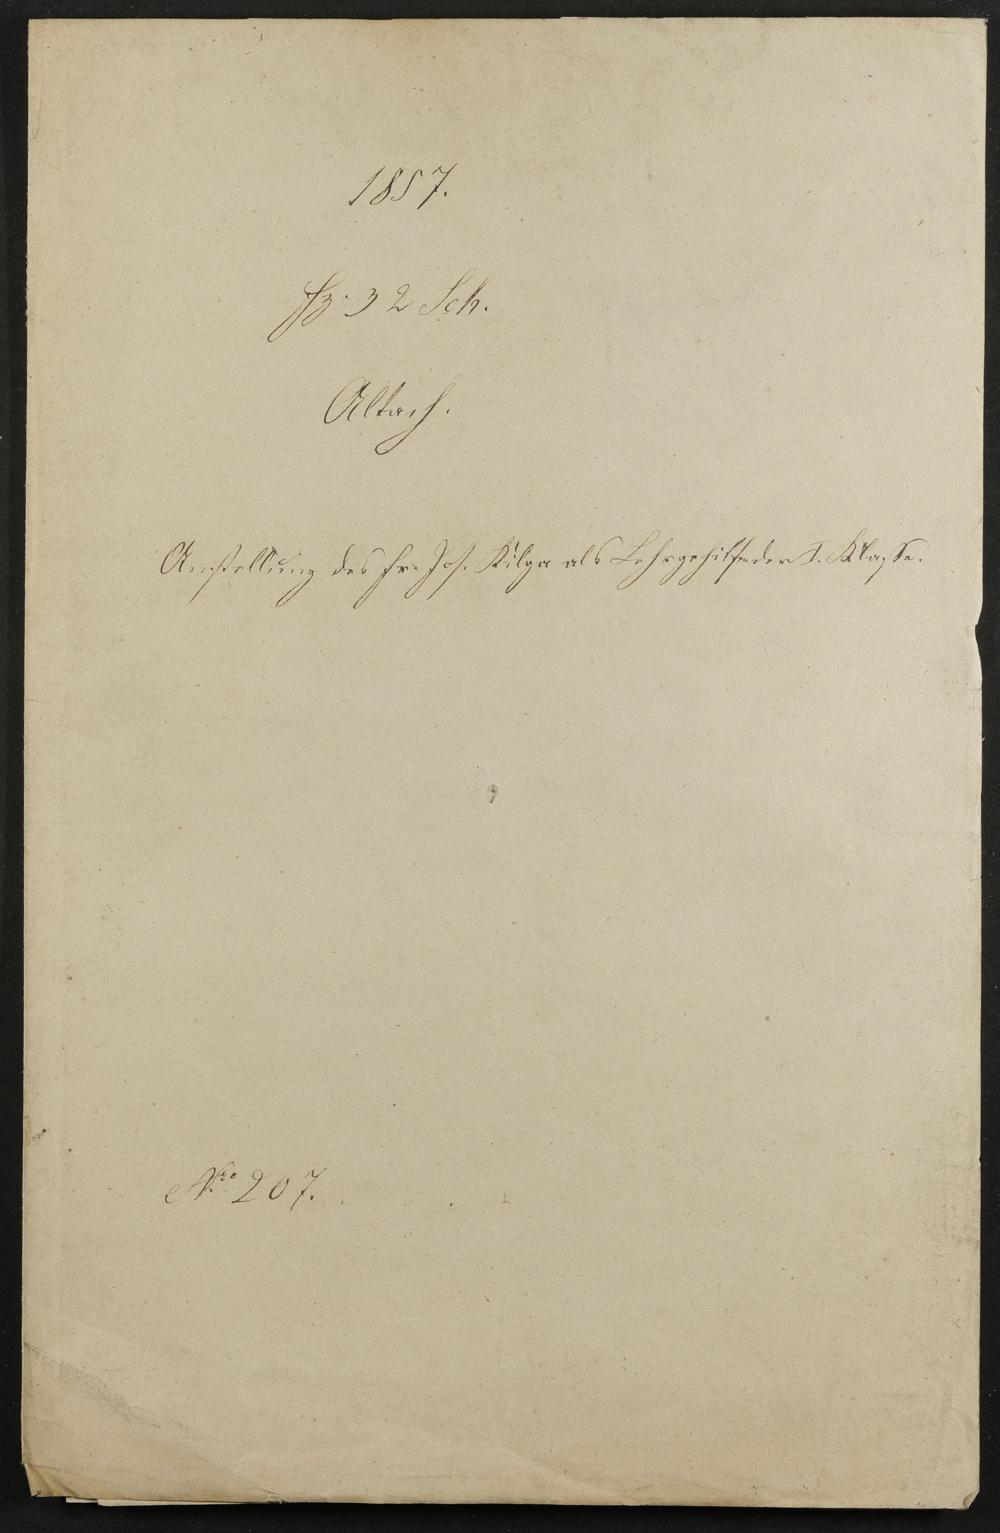 1857.
fz: 32 Sch.
Altach.
Anstellung des Fr. Jos. Kilga als Lehrgehilfe der I. Klasse.
Nro 207.